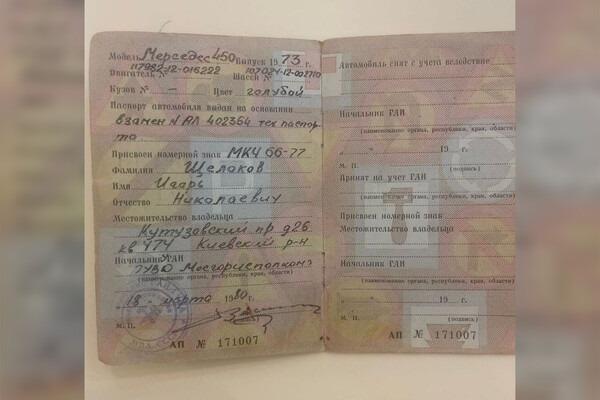 Модель Мерседес 450 Выпуск 1973 г.
117982-12-016222 107024-12-002710
Двигатель № Шасси №
Кузов № — Цвет голубой
Паспорт автомобиля выдан на основании
взамен № АЛ 402364 тех паспор-
та
Присвоен номерной знак МКЧ 66-77
Фамилия Щелоков
Имя Игорь
Отчество Николаевич
Местожительство владельца
Кутузовский пр д26
кв 474 Киевский р-н
Начальник ГАИ
ГУВД Мосгорисполкома
(наименование органа, республики, края, области)
18 марта 1980 г.
М. П. (подпись)
АП № 171007
Автомобиль снят с учета вследствие
Начальник ГАИ
(наименование органа, республики, края, области)
„ “ 19 г.
М. П. (подпись)
Принят на учет ГАИ
(наименование органа, республики, края, области)
Присвоен номерной знак
Местожительство владельца
Начальник ГАИ
(наименование органа, республики, края, области)
„ “ 19 г.
м. п. (подпись)
АП № 171007